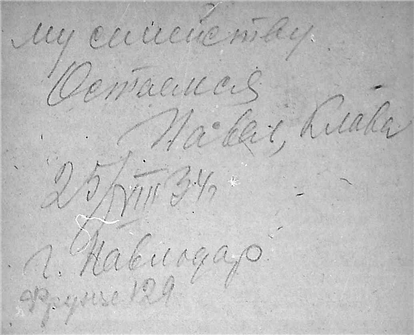 му семейству.
Остаемся
Павел, Клава
25/VIII 34г.
г. Павлодар
Фрунзе 129